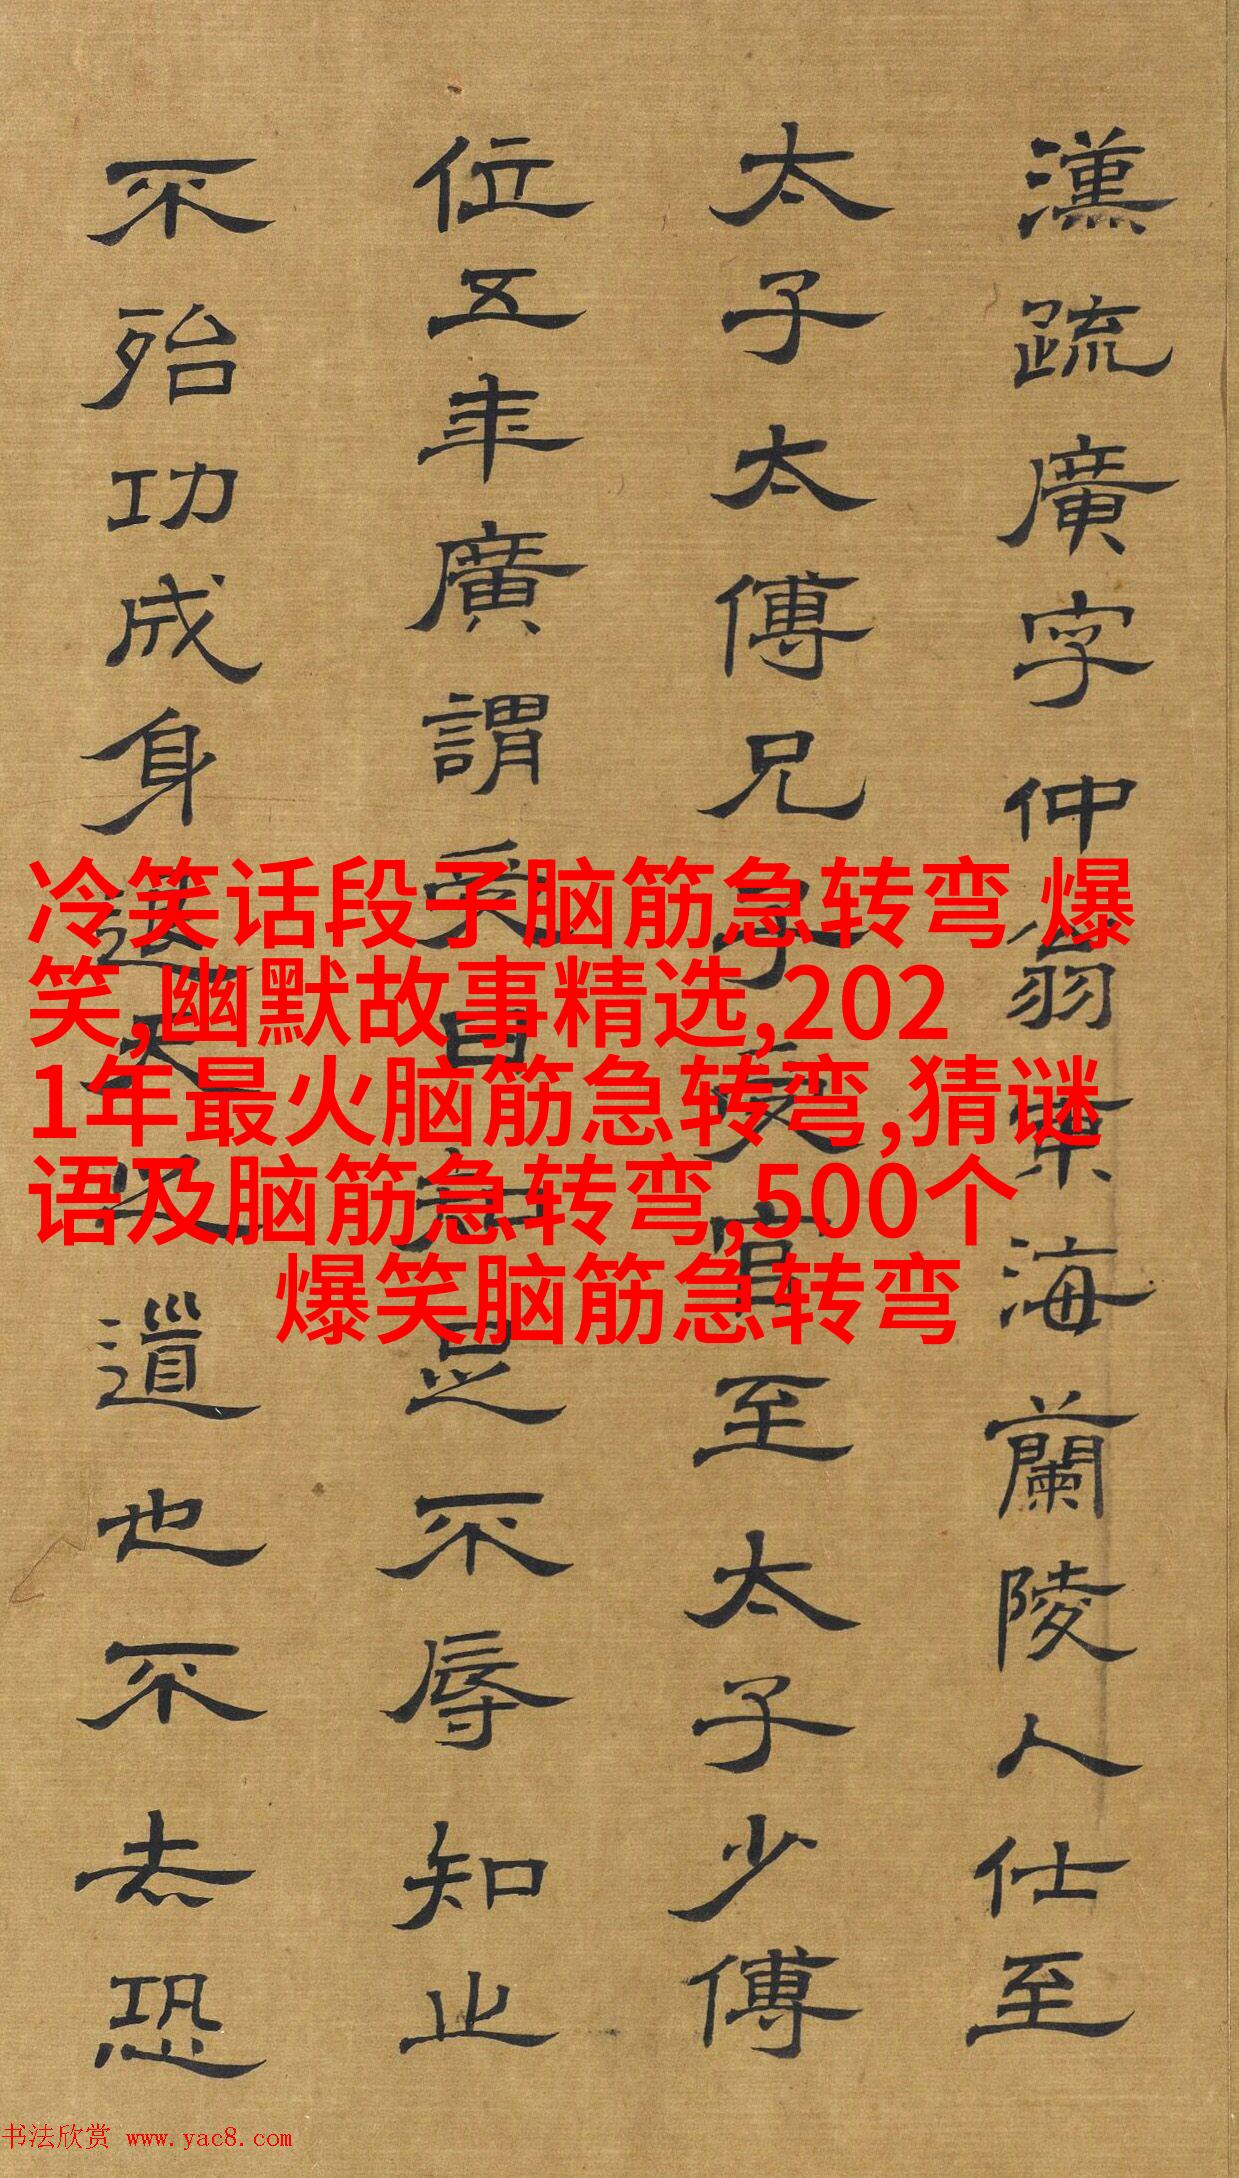 漢疏廣字仲翁東海蘭陵人仕至
太子太傅兄子受官至太子少傅
位五年廣謂受曰知足不辱知止
不殆功成身退天之道也不去恐
冷笑话段子脑筋急转弯 爆
笑,幽默故事精选,202
1年最火脑筋急转弯,猜谜
语及脑筋急转弯,500个
爆笑脑筋急转弯
书法欣赏 www.yac8.com